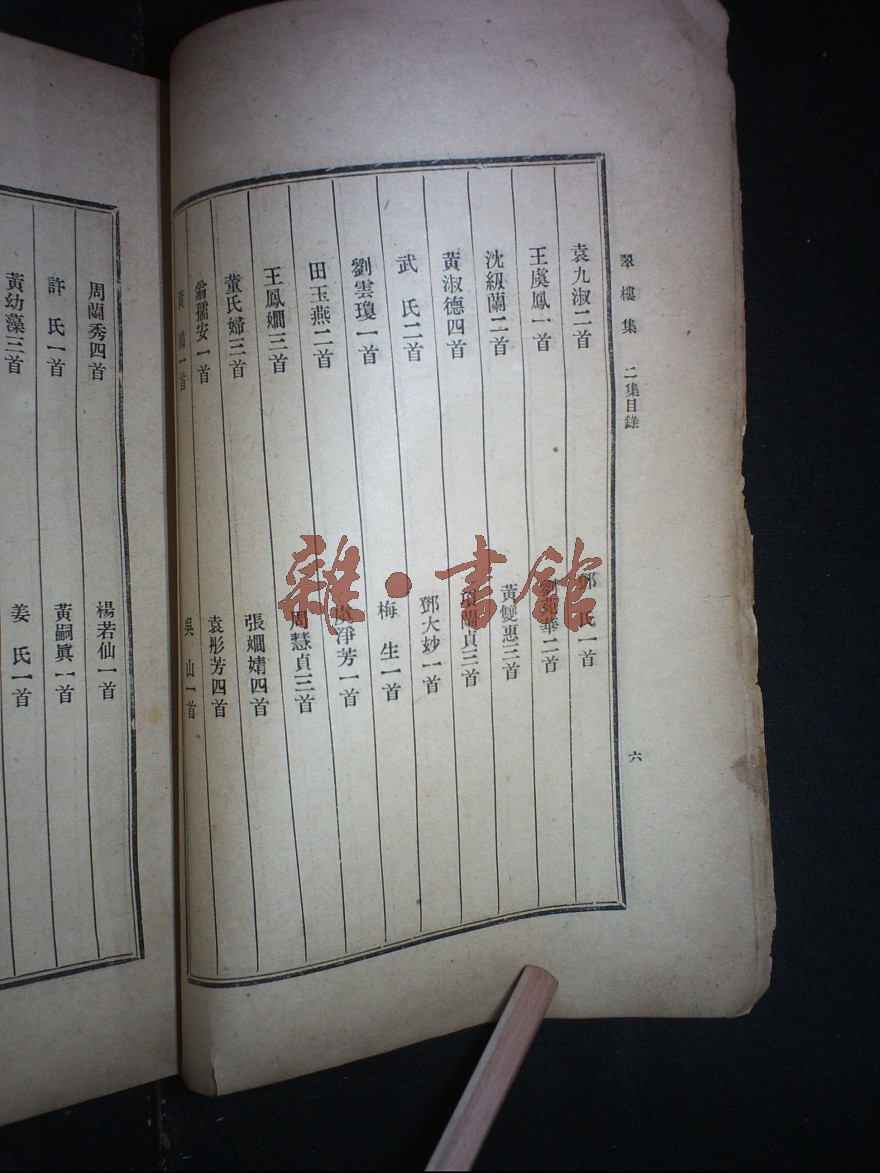 翠樓集 二集目錄 六
袁九淑二首 鄧 氏一首
王虞鳳一首 華二首
沈級蘭二首 黃雙惠三首
黃淑德四首 蘭貞三首
武 氏二首 鄧大妙一首
劉雲瓊一首 梅 生一首
田玉燕二首 淨芳一首
王鳳嫺三首 周慧貞三首
董氏婦三首 張嫺婧四首
翁孺安一首 袁彤芳四首
黃 一首 吳 山一首
周蘭秀四首 楊若仙一首
許 氏一首 黃嗣眞一首
黃幼藻三首 姜 氏一首
雜·書館